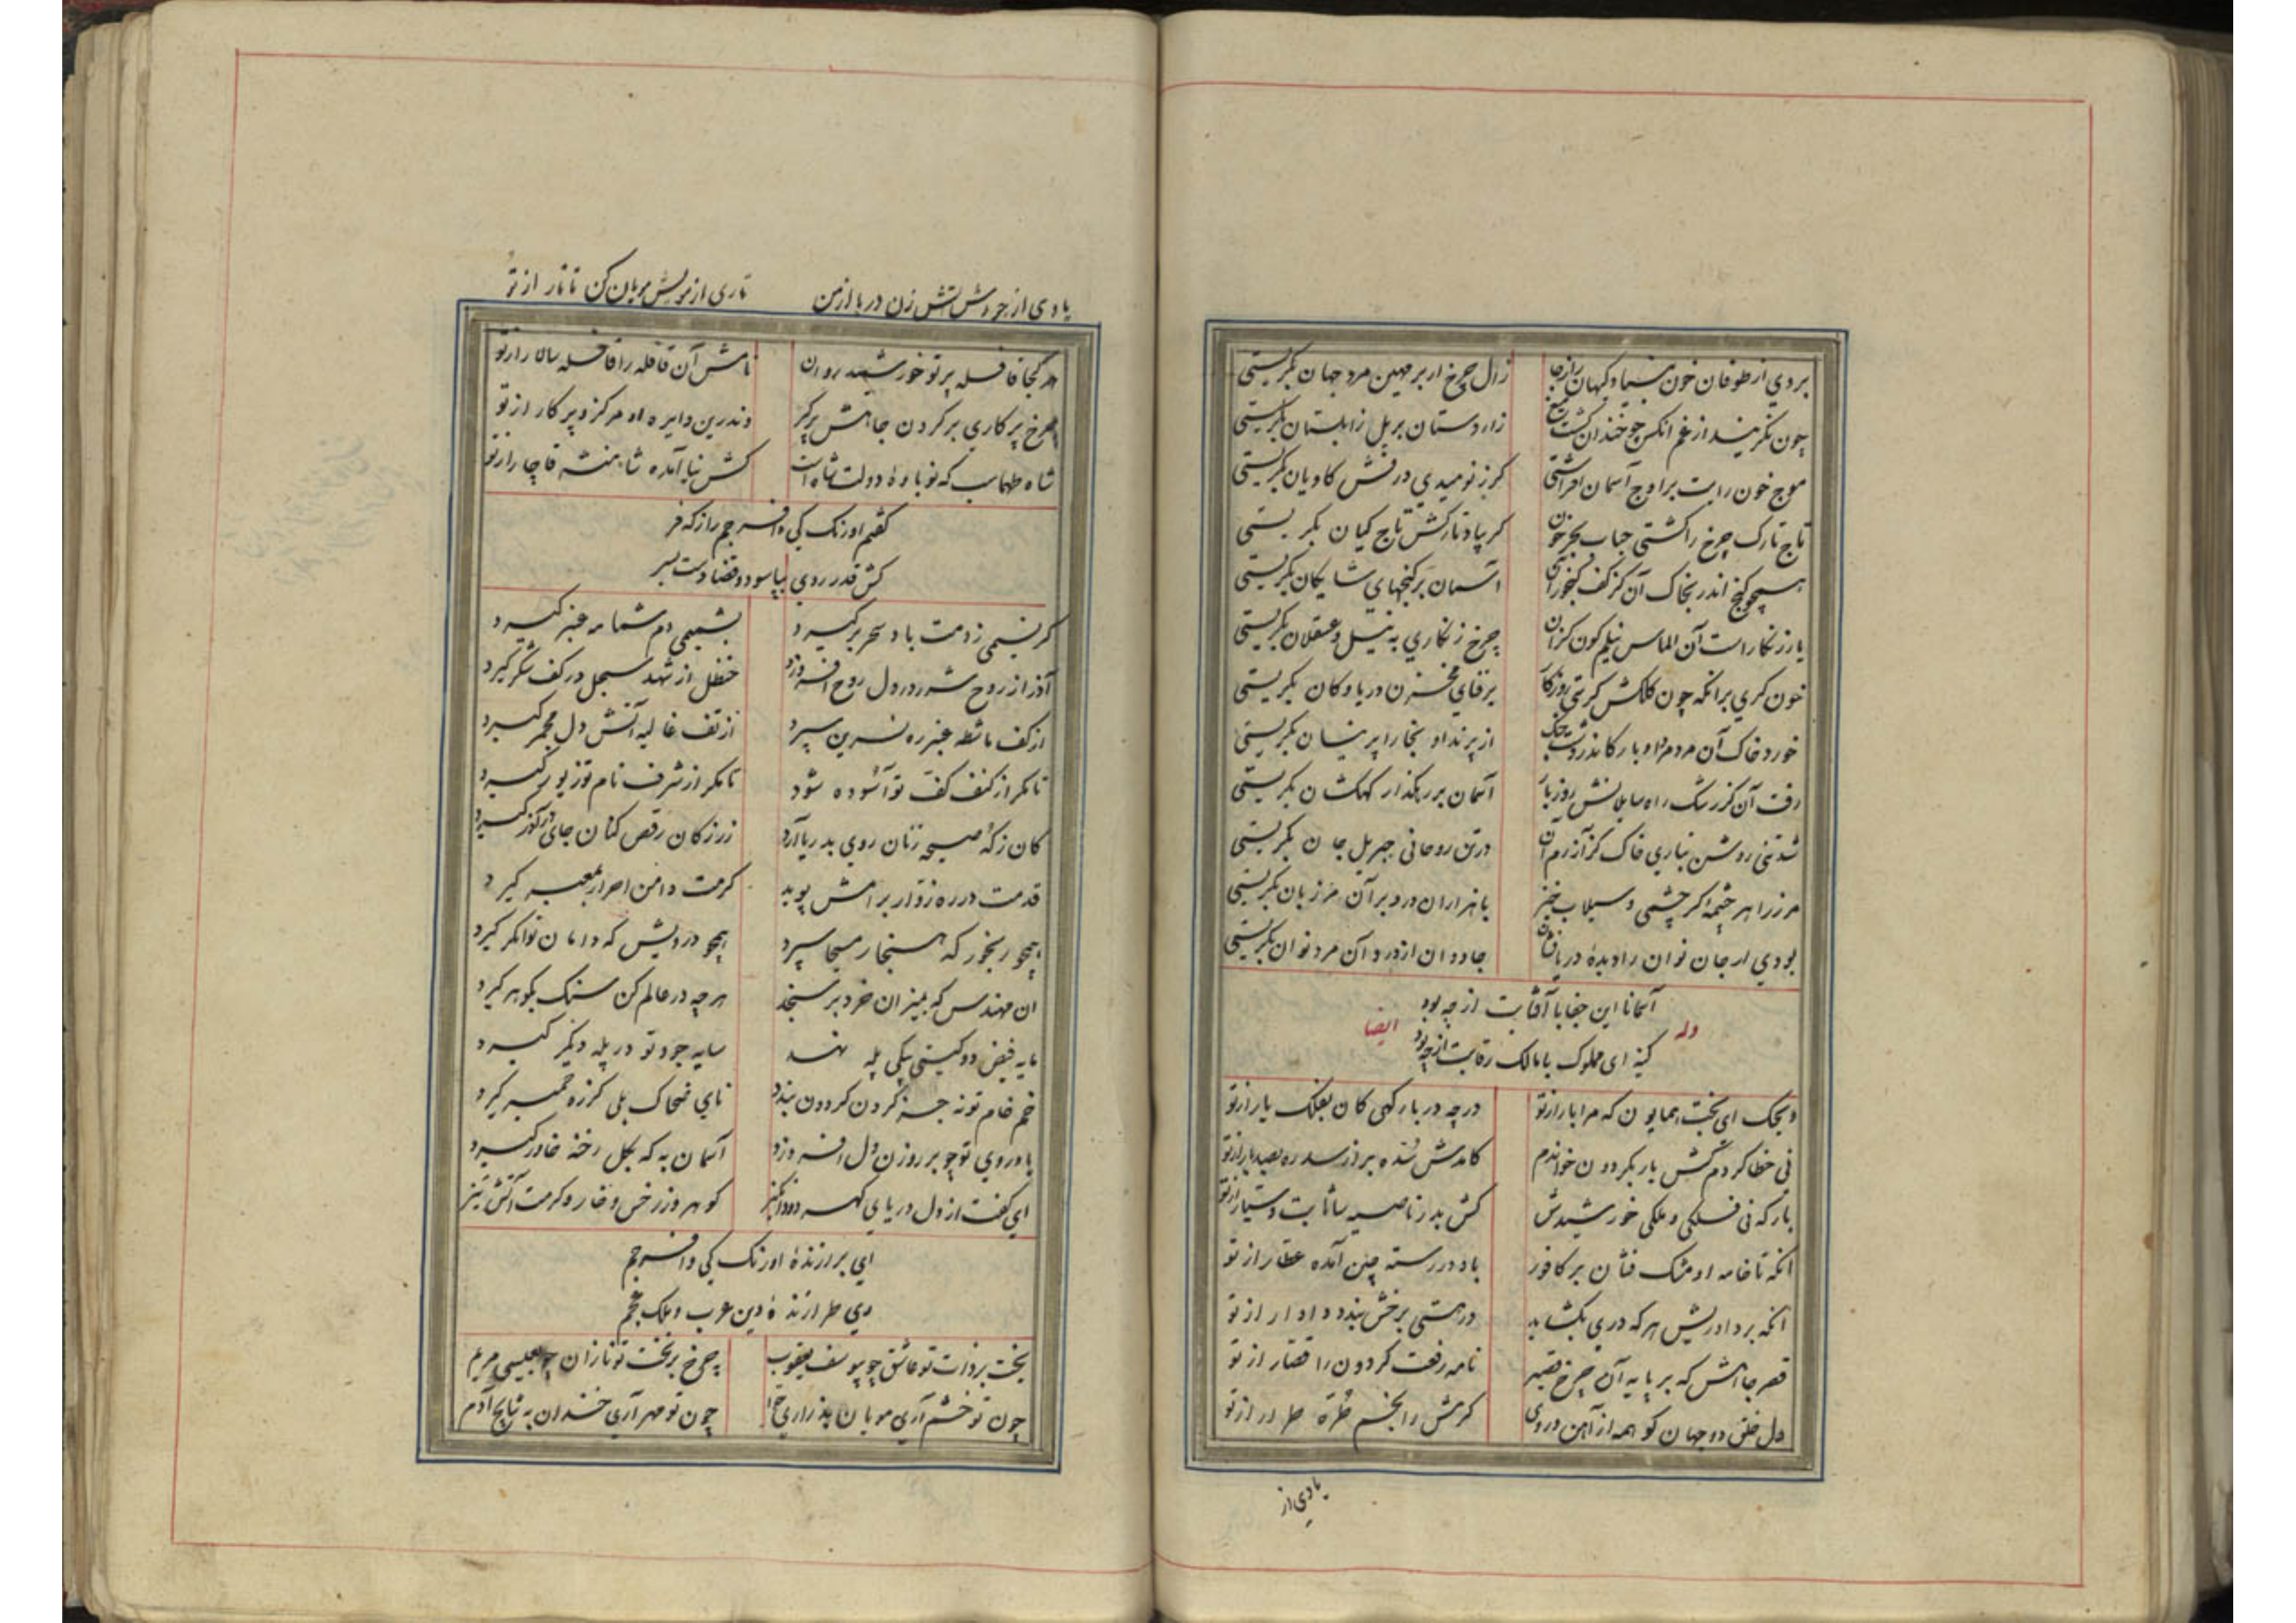 بردی از طوفان خون بنیاد کیهان را ز جا زال چرخ ار بر مهین مرد جهان بگریستی
چون نگرید از غم آنکس چو خندان گشت تیغ زار دستان بر یل زابلستان بگریستی
موج خون رایت بر اوج آسمان افراشتی گر ز نومیدی درفش کاویان بگریستی
تاج تارک چرخ را گشتی حباب بحر خون گر بیاد تارکش تاج کیان بگریستی
همچو گنج اندر بخاک آن کز کف آسمان بر گنجهای شایگان بگریستی
یار زنگار است آن الماس نیلم گون کزان چرخ زنگاری به نیل و عسقلان بگریستی
خون گری بر آنکه چون کلکش گرستی روزگار بر فنای مخزن دریا و کان بگریستی
خورد خاک آن مردم از پرند او بخارا پرنیان بگریستی
رفت آن کز رشک راه سایلانش روز بار آسمان بر رهگذار کهکشان بگریستی
شد تنی روشن بتاری خاک کز آزرم آن در تن روحانی جبریل جان بگریستی
مرز را هر چشمه اگر چشمی و سیلاب خیز با هزاران درد بر آن مرزبان بگریستی
بودی ار جان توان را دیده دریا فشان جاودان از درد آن مرد توان بگریستی
آسمانا این جفا با آفتابت از چه بود
وله ایضا
کینه ای مملوک با مالک رقابت از چه بود
ویحک ای بخت همایون که مرا یار از تو در چه دربار گهی کان بفلک بار از تو
نی خطا کردم گش بار بگردون خواندم کامدش شده برتر از سدره بصد بار از تو
بارکه نی فلکی و ملکی خورشیدش کش بدر ناصیه سا ثابت و سیار از تو
آنکه تا خامه او مشک فشان بر کافور باد در رسته چین آمده عطار از تو
آنکه بر داوریش هر که دری بگشاید در هستی برخش بندد دادار از تو
قصر جاهش که بر پایه آن چرخ قصیر نامه رفعت گردون را قصار از تو
دل خلق دو جهان کو همه از آهن و روی کرمش را بخم طره طرار از تو
یادی از
یادی از جودش آتش زن دریا از من تاری از مویش بربان کن تاتار از تو
هر کجا قافله پرتو خورشید روان نامش آن قافله را قافله سالار از تو
چرخ پرکاری بر گردن جاهش پرگر وندرین دایره اه مرکز و پرکار از تو
شاه طهماسب که نوباوه دولتشاه است کش نیا آمده شاهنشه قاجار از تو
گفتم اورنگ کی و افسر جم راز که فر
کش قدر روی بپا سود و قضا دست بسر
گر نسیمی ز دمت باد سحر برگیرد بشمیمی دم شمامه عنبر گیرد
آذر از روح شرر در دل روح افروزد حنظل از شهد سجل در کف شکر گیرد
از کف ماشطه عنبر ره نسرین سپرد از تف غالیه آتش دل مجمر گیرد
تا مگر از کنف کف تو آسوده شود تا مگر از شرف نام تو زیور گیرد
کان ز که صیحه زنان روی بدریا آرد زر ز کان رقص کنان جای در آذر گیرد
قدمت در ره زوار برامش پوید کرمت دامن احرار گیرد
همچو رنجور که هنجار مسیحا سپرد همچو درویش که دامان توانگر گیرد
ان مهندس که بمیزان خرد بر سنجد هر چه در عالم کن سنگ بگوهر گیرد
مایه فیض دو گیتی بیکی پله نهد سایه جود تو در پله دیگر گیرد
خم خام تو نه جز گردن گردون بندد نای ضحاک بلی گرزه گیرد
با روی تو چو بر روزن دل افروزد آسمان به که بگل رخنه خاور گیرد
ای کفت از دل دریای گهر دود انگیز گوهر و زر خس و خار و کرمت آتش تیز
ای برازنده اورنگ کی و افسر جم
وی طرازنده دین عرب و ملک عجم
بخت بر ذات تو عاشق چو بیوسف یعقوب چرخ بر بخت تو نازان چو بعیسی مریم
چون تو خشم آری مویان پذر از ری حوا چون تو مهر آری خندان به نتایج آدم